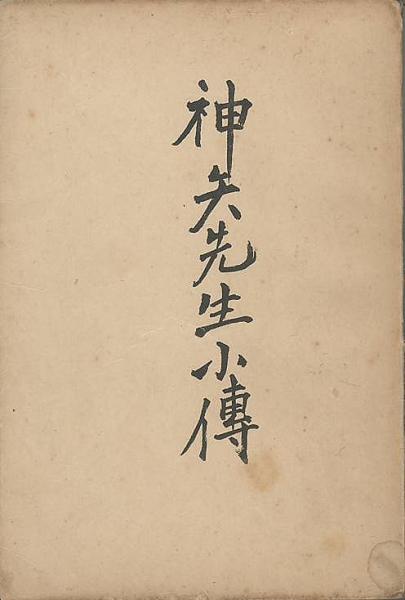 神矢先生小傳